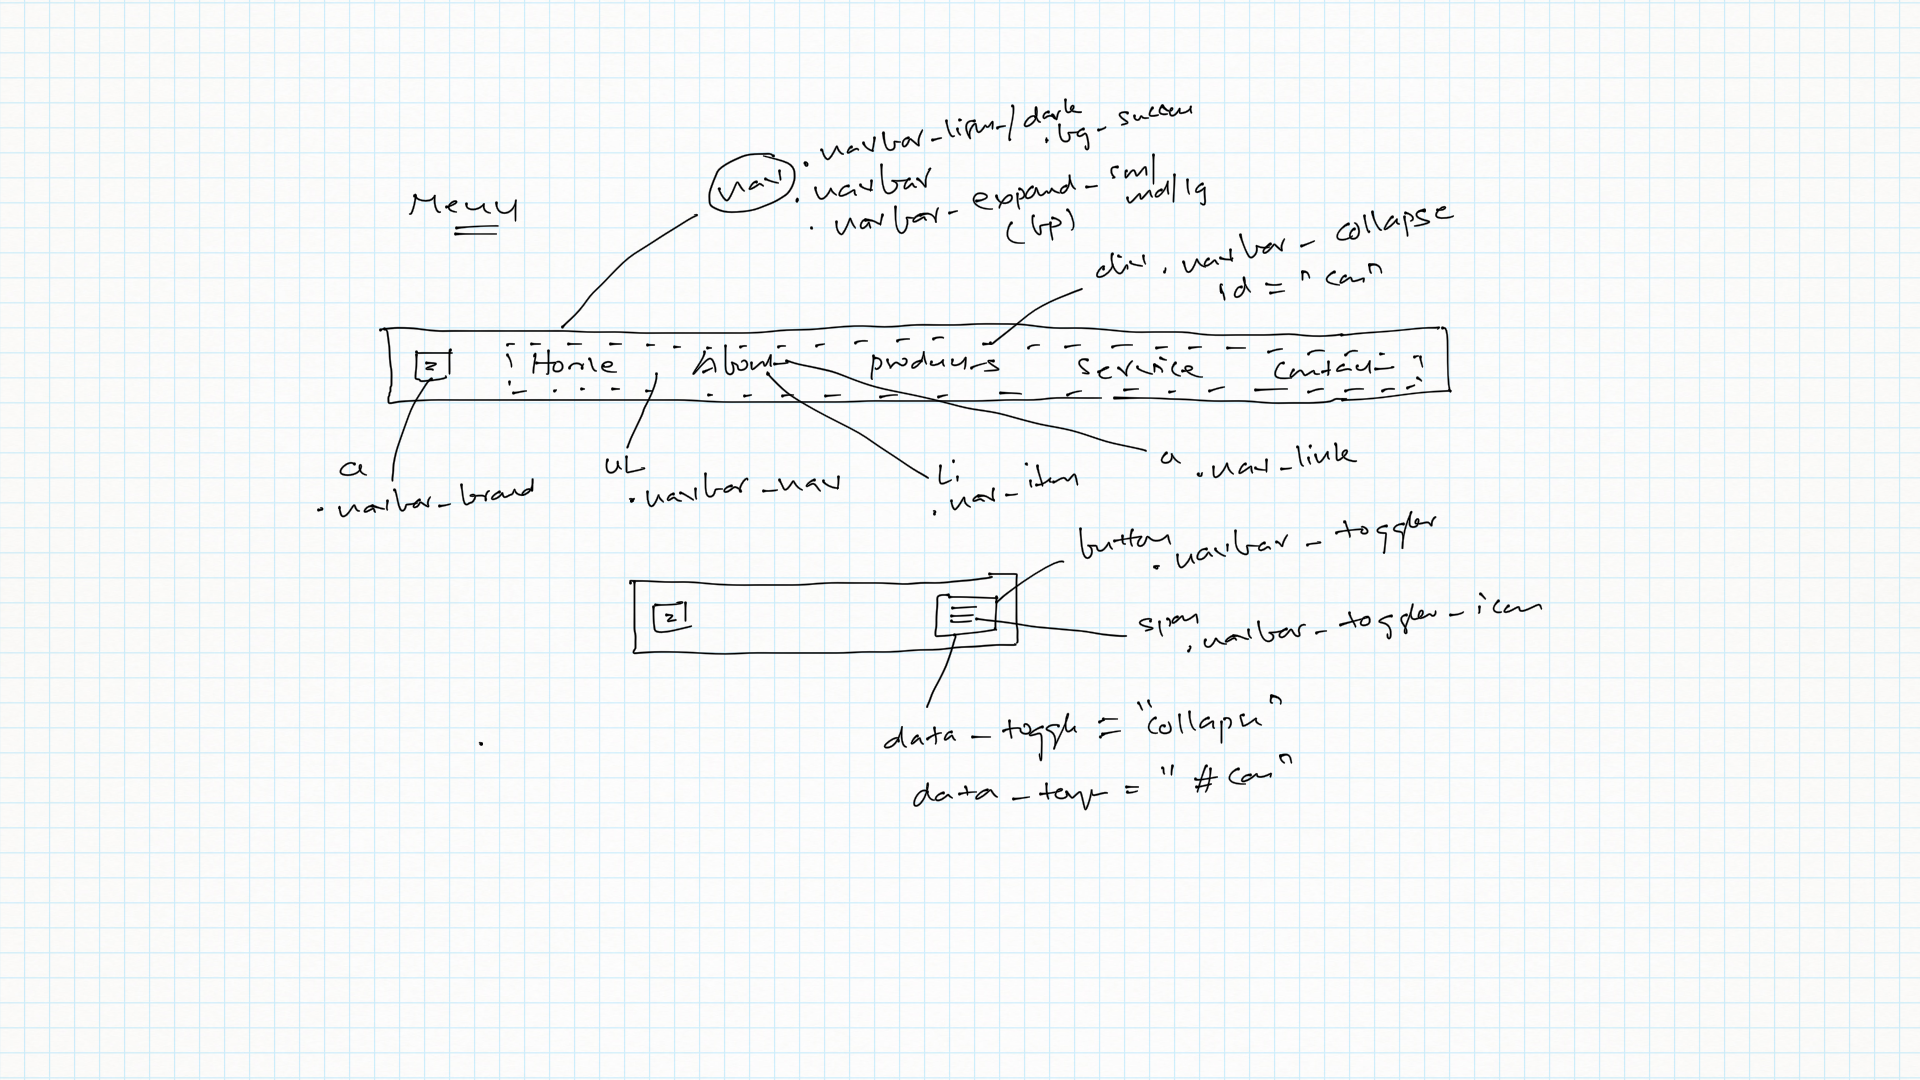 Menu
nav
.navbar-light/dark
.bg-success
.navbar
.navbar-expand-sm/
md/lg
(bp)
div.navbar-collapse
id="can"
z Home About products service contact
a
.navbar-brand
UL
.navbar-nav
Li
.nav-item
a
.nav-link
button
.navbar-toggler
z
span
.navbar-toggler-icon
data-toggle="collapse"
data-target="#can"